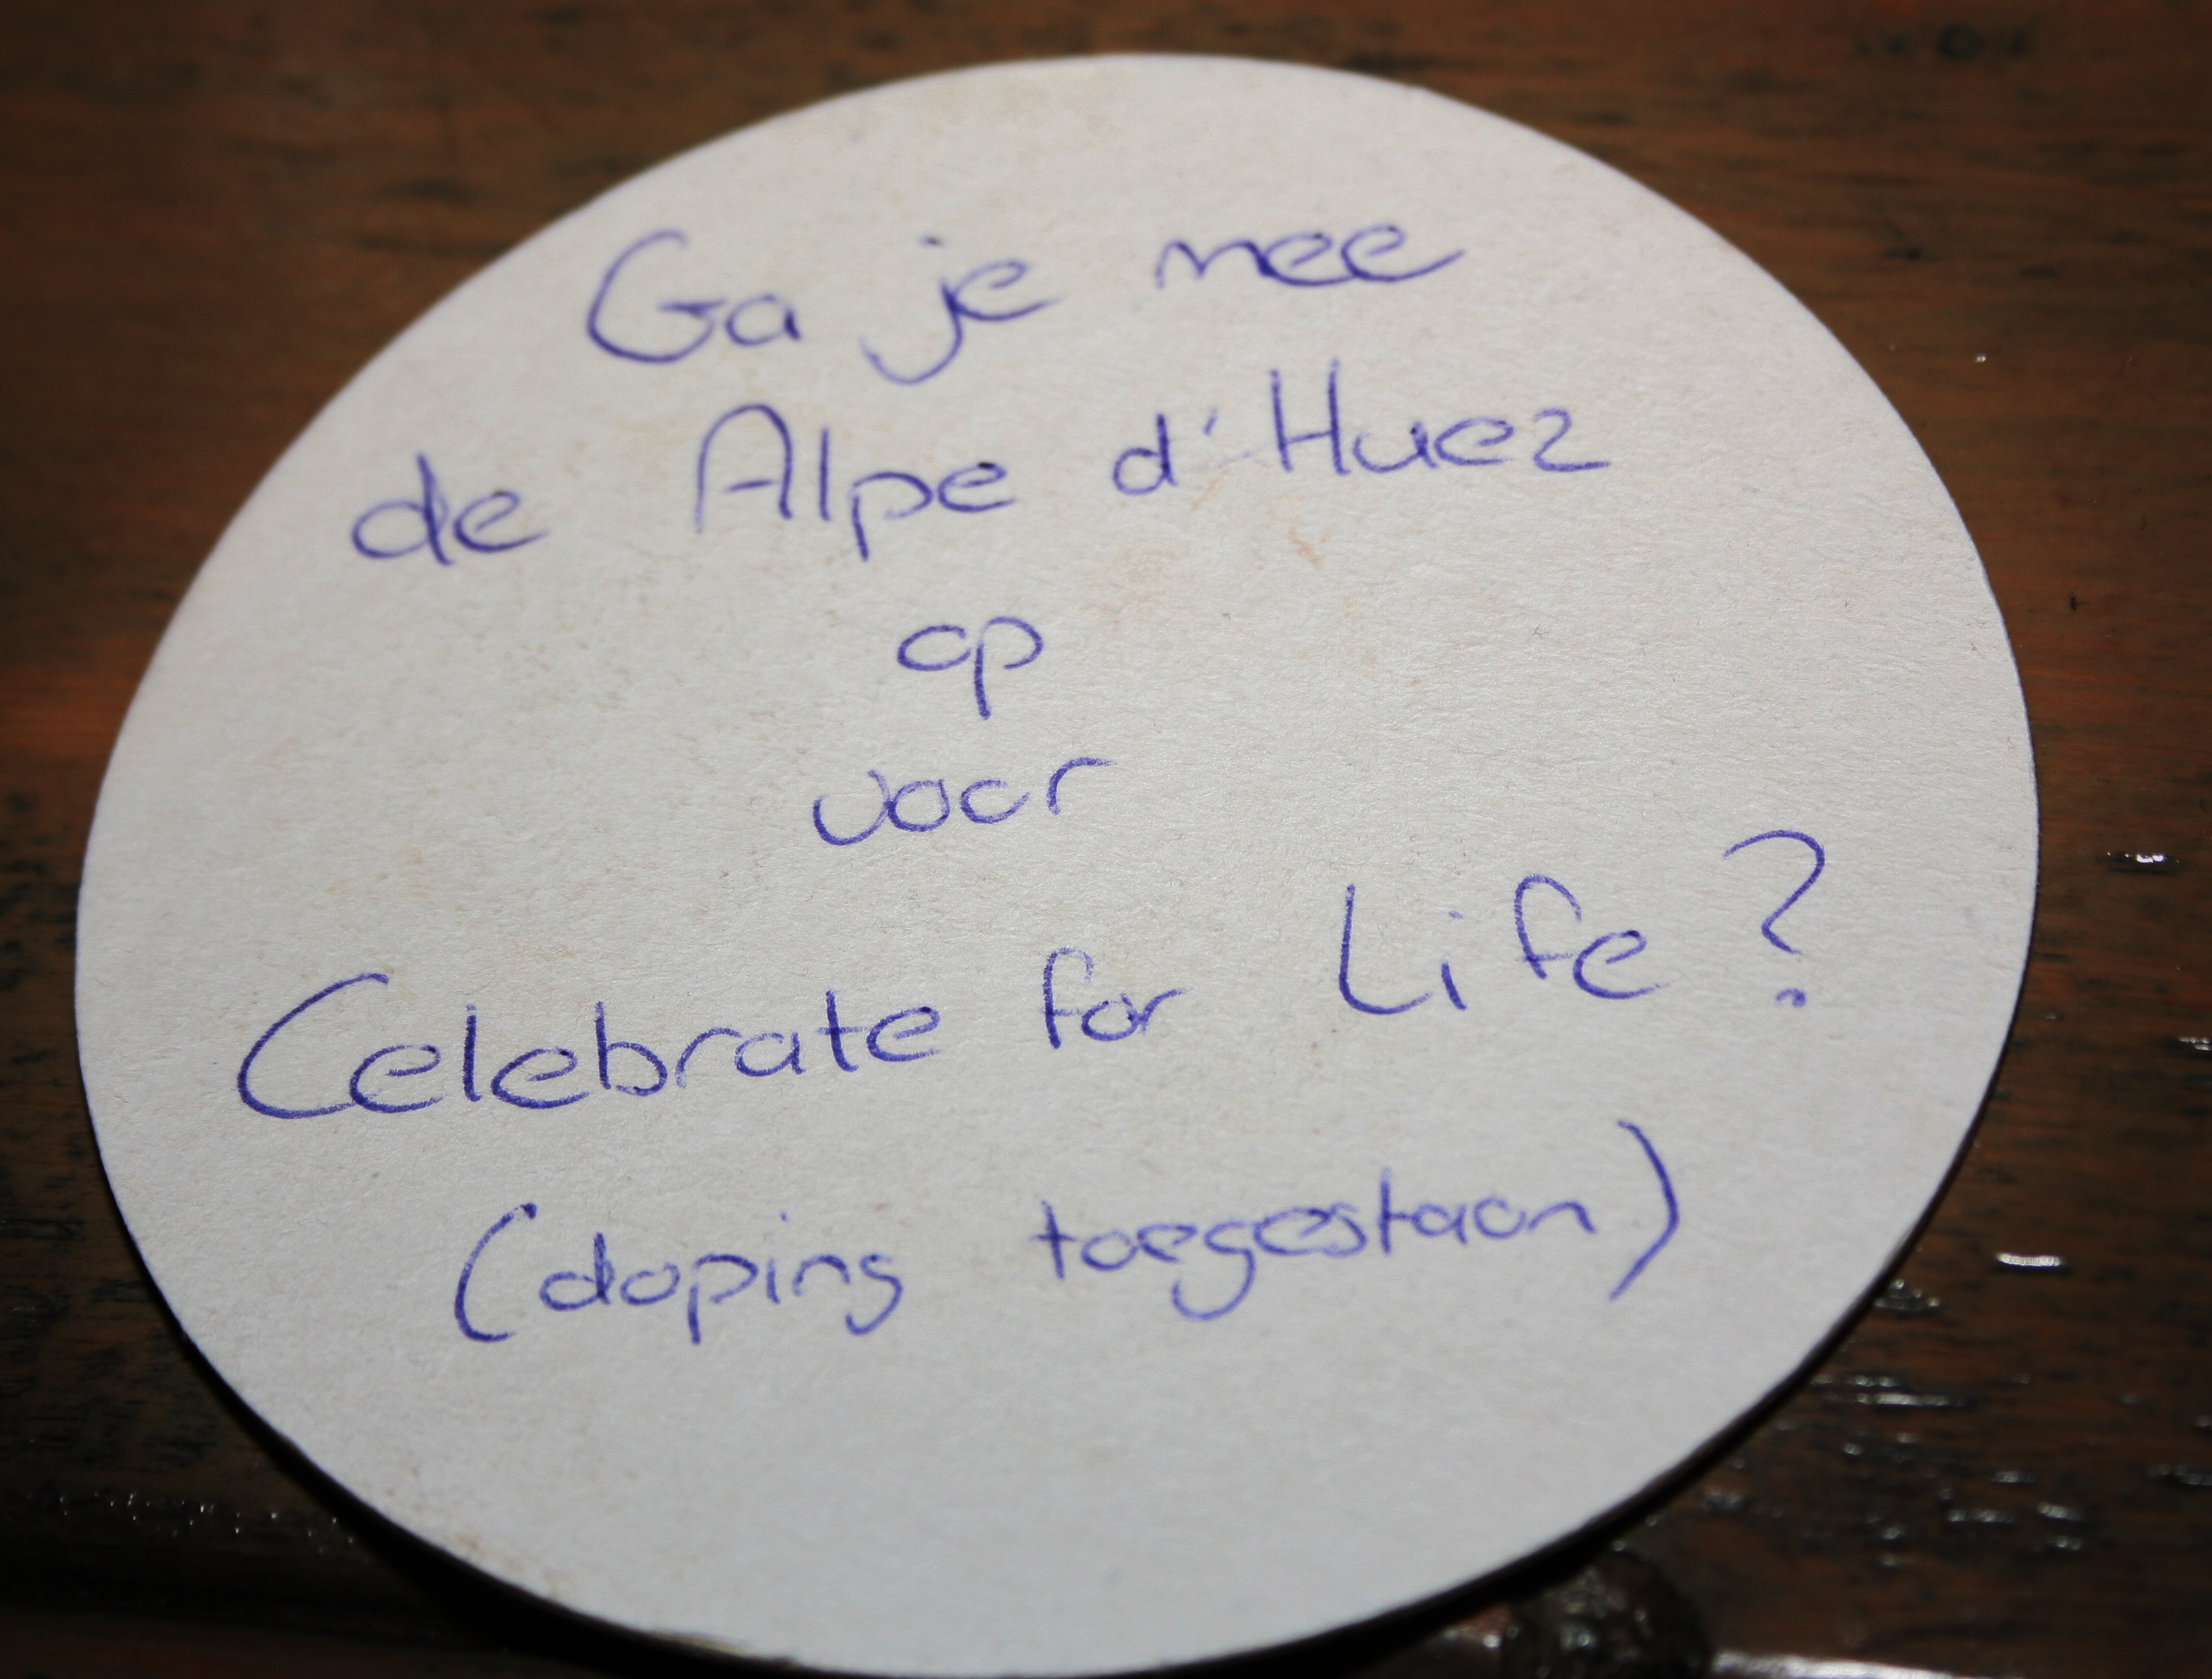 Ga je mee
de Alpe d'Huez
op
voor
Celebrate for Life?
(doping toegestaan)